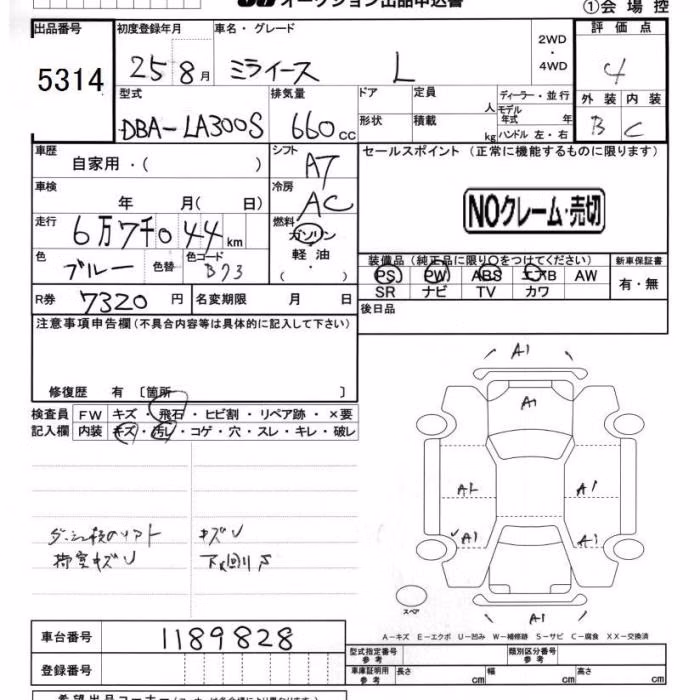 オークション出品申込書 ①会場控
出品番号 初度登録年月 車名・グレード 2WD・4WD 評価点
5314 25 8月 ミライース L 4
型式 排気量 ドア 定員 人 ディーラー・並行 外装 内装
DBA-LA300S 660cc 形状 積載 kg モデル年式 年 ハンドル 左・右 B C
車歴 シフト セールスポイント (正常に機能するものに限ります)
自家用・( ) AT
車検 冷房
年 月( 日) AC NOクレーム・売切
走行 燃料
6万7千044km ガソリン
色 色替 色コード 軽油・( ) 装備品 (純正品に限り○をつけてください) 新車保証書
ブルー B73 PS PW ABS エアB AW 有・無
SR ナビ TV カワ
R券 7320円 名変期限 月 日 後日品
注意事項申告欄(不具合内容等は具体的に記入して下さい)
修復歴 有 〔箇所 〕
検査員 FW キズ・飛石・ヒビ割・リペア跡・×要
記入欄 内装 キズ・汚レ・コゲ・穴・スレ・キレ・破レ
キズU
下廻りS
A1
A1
A1
A1
A1
A1
スペア
A-キズ E-エクボ U-凹み W-補修跡 S-サビ C-腐食 XX-交換済
車台番号 1189828
型式指定番号 参考 類別区分番号 参考
登録番号 車庫証明用 参考 長さ cm 幅 cm 高さ cm
希望出品コーナー